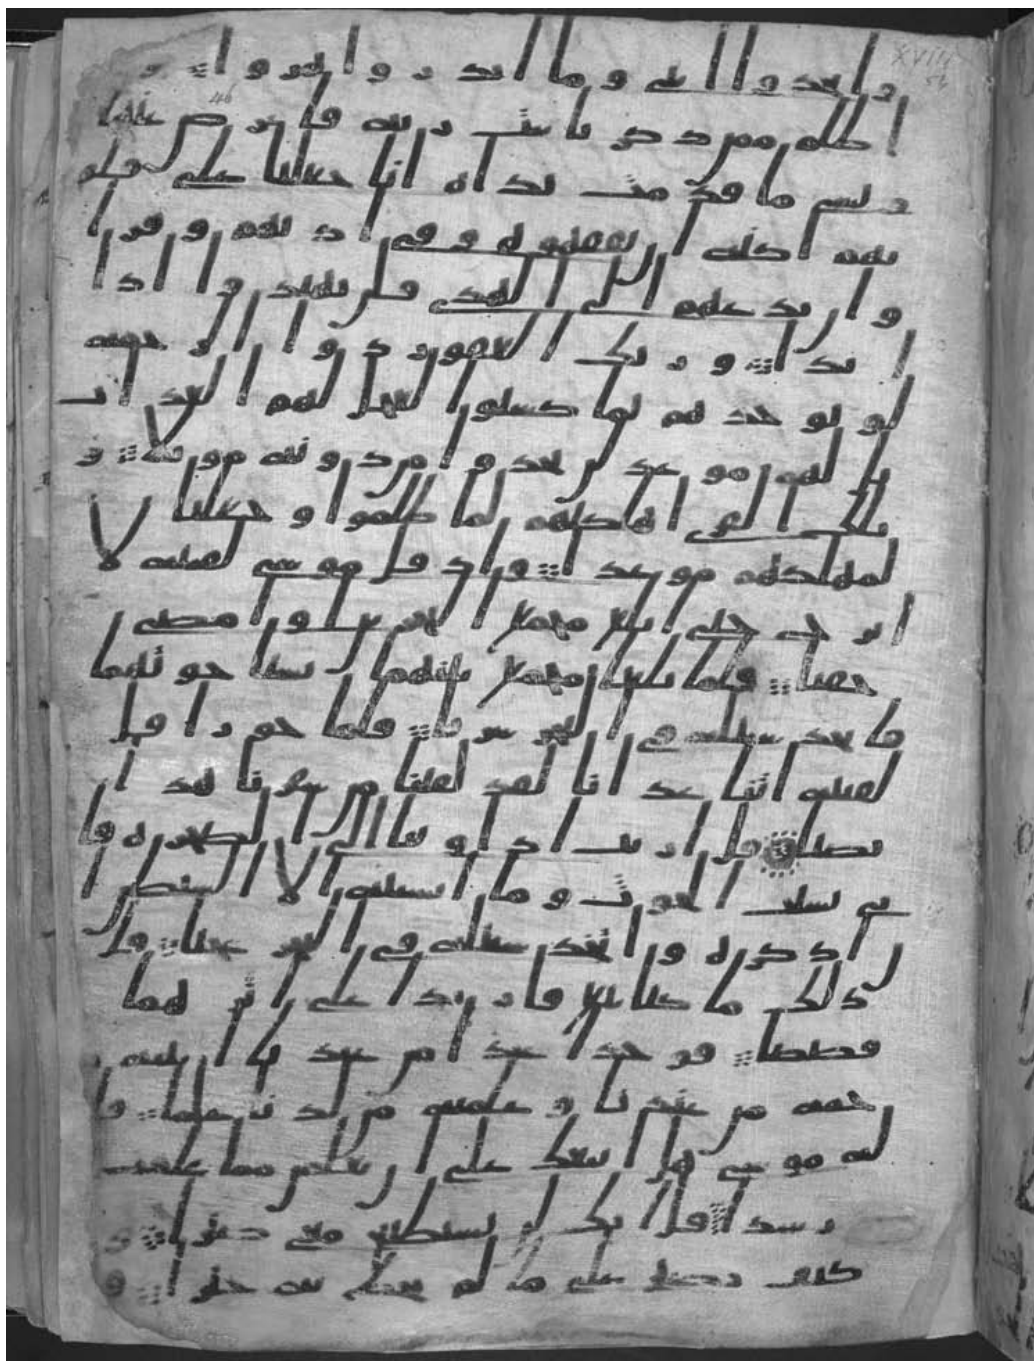 XVIII
56
واتخذوا ايتى وما انذروا هزوا و
46
اظلم ممن ذكر بايت ربه فاعرض عنها
ونسى ما قدمت يداه انا جعلنا على قلو
بهم اكنه ان يفقهوه وفى اذنهم وقرا
وان تدعهم الى الهدى فلن يهتدوا اذا
ابدا وربك الغفور ذو الرحمه
لو يوخذهم بما كسبوا لعجل لهم العذاب
بل لهم موعد لن يجدوا من دونه مويلا و
تلك القرى اهلكنهم لما ظلموا وجعلنا
لمهلكهم موعدا واذ قل موسى لفتيه لا
ابرح حتى ابلغ مجمع البحرين او امضى
حقبا فلما بلغا مجمع بينهما نسيا حوتهما
فاتخذ سبيله فى البحر سربا فلما جوزا قل
لفتيه اتنا غدانا لقد لقينا من سفرنا هذا
نصبا قل اريت اذ اوينا الى الصخره فا
نى نسيت الحوت وما انسنيه الا الشيطن ا
ن اذكره واتخذ سبيله فى البحر عجبا قل
ذلك ما كنا نبغ فارتدا على اثرهما
قصصا فوجدا عبدا من عبدنا اتينه ر
حمه من عندنا وعلمنه من لدنا علما قا
ل له موسى هل اتبعك على ان تعلمن مما علمت
رشدا قل انك لن تستطيع معى صبرا و
كيف تصبر على ما لم تحط به خبرا